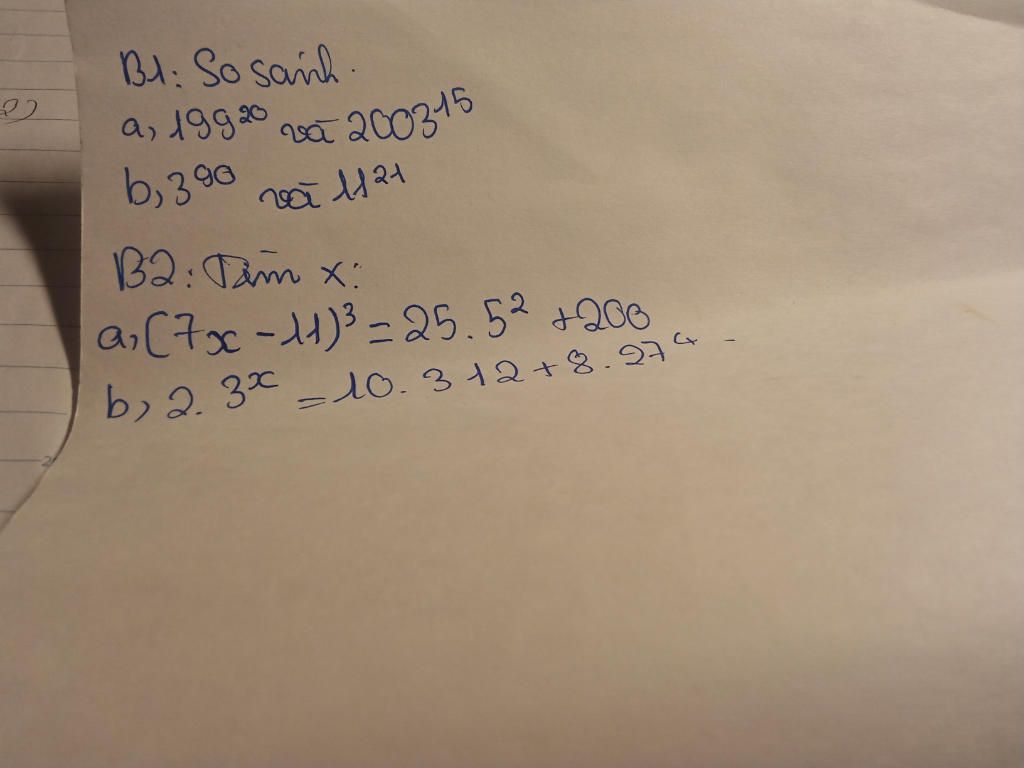 B1: So sánh.
a, 199²⁰ và 2003¹⁵
b, 3⁹⁰ và 11²¹
B2: Tìm x:
a, (7x - 11)³ = 25. 5² + 200
b, 2. 3ˣ = 10. 312 + 8. 27⁴